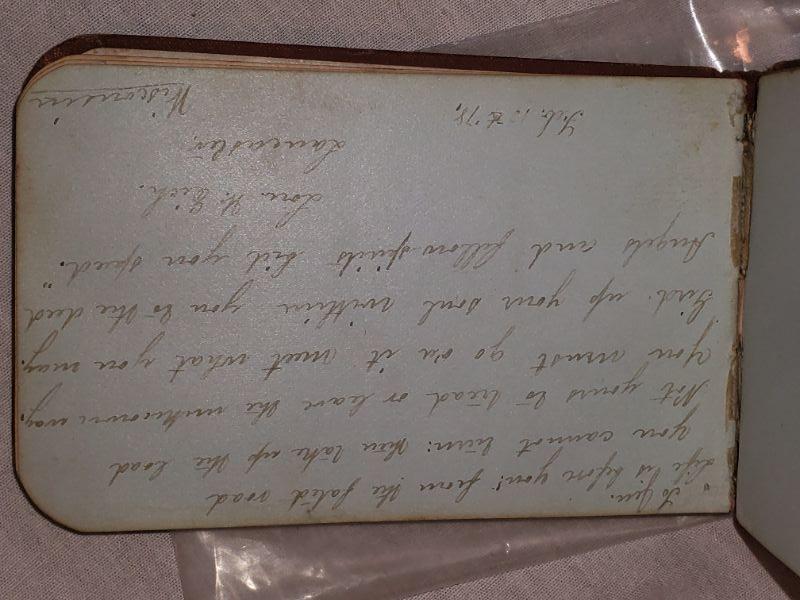 To Jen.
"Life lies before you; from the fated road
You cannot turn: then take up the load
Not yours to tread or leave the unknown way.
You must go o'er it, meet what you may.
Gird up your soul within you to the deed
Angels and fellow spirits bid you speed."
Lou. W.
Lancaster,
Wisconsin
Feb. '78,